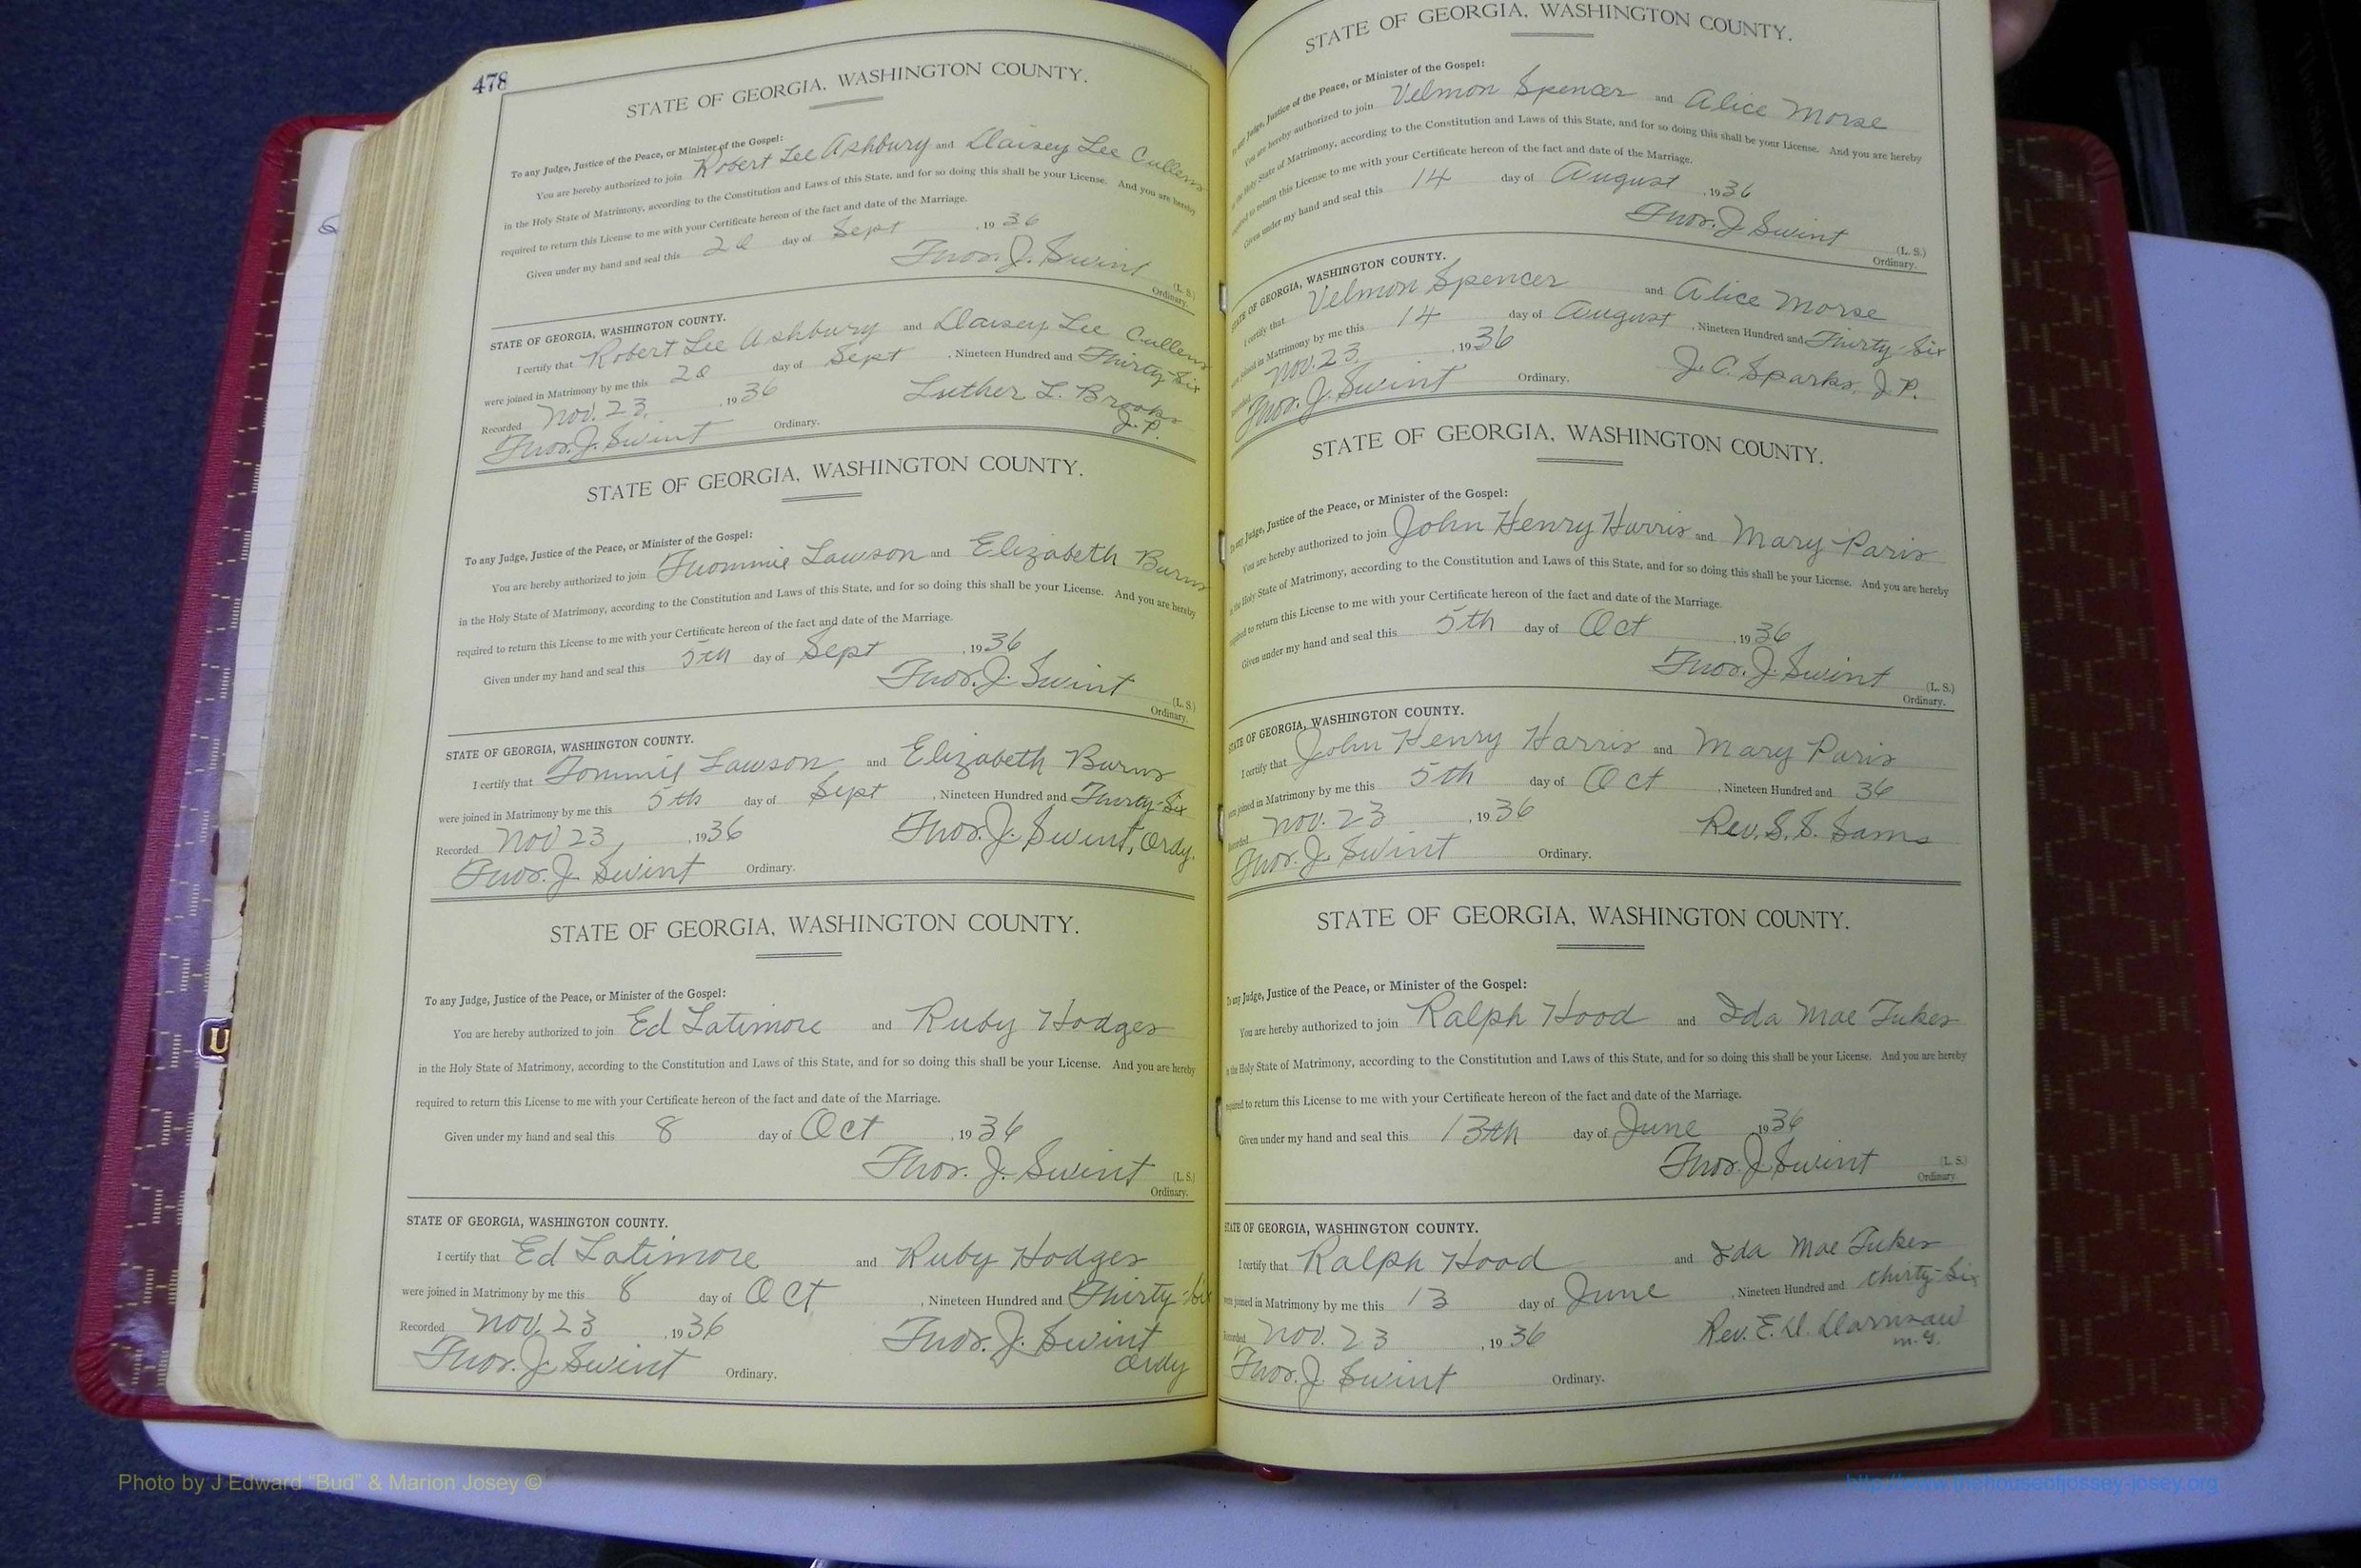 478
STATE OF GEORGIA, WASHINGTON COUNTY.
To any Judge, Justice of the Peace, or Minister of the Gospel:
You are hereby authorized to join Robert Lee Ashbury and Daisey Lee Cullens
in the Holy State of Matrimony, according to the Constitution and Laws of this State, and for so doing this shall be your License. And you are hereby
required to return this License to me with your Certificate hereon of the fact and date of the Marriage.
Given under my hand and seal this 20 day of Sept , 1936
Thos. J. Swint (L. S.)
Ordinary.
STATE OF GEORGIA, WASHINGTON COUNTY.
I certify that Robert Lee Ashbury and Daisey Lee Cullens
were joined in Matrimony by me this 20 day of Sept , Nineteen Hundred and Thirty-Six
Recorded Nov. 23, , 1936 Luther L. Brooks
J. P.
Thos. J. Swint Ordinary.
STATE OF GEORGIA, WASHINGTON COUNTY.
To any Judge, Justice of the Peace, or Minister of the Gospel:
You are hereby authorized to join Tommie Lawson and Elizabeth Burns
in the Holy State of Matrimony, according to the Constitution and Laws of this State, and for so doing this shall be your License. And you are hereby
required to return this License to me with your Certificate hereon of the fact and date of the Marriage.
Given under my hand and seal this 5th day of Sept , 1936
Thos. J. Swint (L. S.)
Ordinary.
STATE OF GEORGIA, WASHINGTON COUNTY.
I certify that Tommie Lawson and Elizabeth Burns
were joined in Matrimony by me this 5th day of Sept , Nineteen Hundred and Thirty-Six
Recorded Nov 23 , 1936 Thos. J. Swint, Ordy.
Thos. J. Swint Ordinary.
STATE OF GEORGIA, WASHINGTON COUNTY.
To any Judge, Justice of the Peace, or Minister of the Gospel:
You are hereby authorized to join Ed Latimore and Ruby Hodges
in the Holy State of Matrimony, according to the Constitution and Laws of this State, and for so doing this shall be your License. And you are hereby
required to return this License to me with your Certificate hereon of the fact and date of the Marriage.
Given under my hand and seal this 8 day of Oct , 1936
Thos. J. Swint (L. S.)
Ordinary.
STATE OF GEORGIA, WASHINGTON COUNTY.
I certify that Ed Latimore and Ruby Hodges
were joined in Matrimony by me this 8 day of Oct , Nineteen Hundred and Thirty-Six
Recorded Nov. 23 , 1936 Thos. J. Swint
Ordy
Thos. J. Swint Ordinary.
STATE OF GEORGIA, WASHINGTON COUNTY.
To any Judge, Justice of the Peace, or Minister of the Gospel:
You are hereby authorized to join Velmon Spencer and Alice Morse
in the Holy State of Matrimony, according to the Constitution and Laws of this State, and for so doing this shall be your License. And you are hereby
required to return this License to me with your Certificate hereon of the fact and date of the Marriage.
Given under my hand and seal this 14 day of August , 1936
Thos. J. Swint (L. S.)
Ordinary.
STATE OF GEORGIA, WASHINGTON COUNTY.
I certify that Velmon Spencer and Alice Morse
were joined in Matrimony by me this 14 day of August , Nineteen Hundred and Thirty-Six
Recorded Nov. 23, , 1936 J. C. Sparks, J P.
Thos. J. Swint Ordinary.
STATE OF GEORGIA, WASHINGTON COUNTY.
To any Judge, Justice of the Peace, or Minister of the Gospel:
You are hereby authorized to join John Henry Harris and Mary Paris
in the Holy State of Matrimony, according to the Constitution and Laws of this State, and for so doing this shall be your License. And you are hereby
required to return this License to me with your Certificate hereon of the fact and date of the Marriage.
Given under my hand and seal this 5th day of Oct , 1936
Thos. J. Swint (L. S.)
Ordinary.
STATE OF GEORGIA, WASHINGTON COUNTY.
I certify that John Henry Harris and Mary Paris
were joined in Matrimony by me this 5th day of Oct , Nineteen Hundred and 36
Recorded Nov. 23 , 1936 Rev. S. S. Sams
Thos. J. Swint Ordinary.
STATE OF GEORGIA, WASHINGTON COUNTY.
To any Judge, Justice of the Peace, or Minister of the Gospel:
You are hereby authorized to join Ralph Hood and Ida Mae Tukes
in the Holy State of Matrimony, according to the Constitution and Laws of this State, and for so doing this shall be your License. And you are hereby
required to return this License to me with your Certificate hereon of the fact and date of the Marriage.
Given under my hand and seal this 13th day of June , 1936
Thos. J Swint (L. S.)
Ordinary.
STATE OF GEORGIA, WASHINGTON COUNTY.
I certify that Ralph Hood and Ida Mae Tukes
were joined in Matrimony by me this 13 day of June , Nineteen Hundred and thirty-Six
Recorded Nov. 23 , 1936 Rev. E. D.
M. G.
Thos. J. Swint Ordinary.
U
Photo by J Edward "Bud" & Marion Josey ©
http://www.thehouseofjossey-josey.org